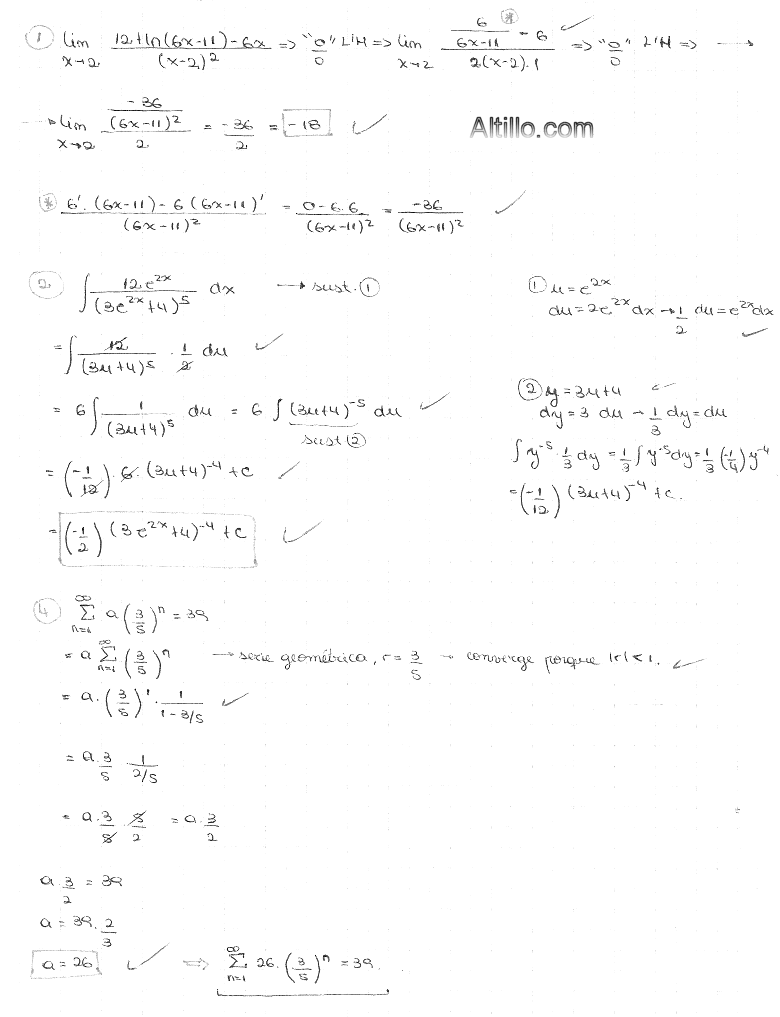 ① lim x→2 (12+ln(6x-11)-6x)/(x-2)² => "0/0" L'H => lim x→2 (6/(6x-11) ⊛ - 6)/(2(x-2).1) => "0/0" L'H => →
→ lim x→2 (-36/(6x-11)²)/2 = -36/2 = -18
Altillo.com
⊛ (6'.(6x-11)-6(6x-11)')/(6x-11)² = (0-6.6)/(6x-11)² = -36/(6x-11)²
② ∫ 12e^(2x)/(3e^(2x)+4)^5 dx → sust. ①
① u=e^(2x)
du=2e^(2x)dx → 1/2 du=e^(2x)dx
= ∫ 12/(3u+4)^5 . 1/2 du
= 6∫ 1/(3u+4)^5 du = 6∫(3u+4)^(-5) du
sust ②
② y=3u+4
dy=3 du → 1/3 dy=du
∫y^(-5).1/3 dy = 1/3 ∫y^(-5)dy = 1/3 (-1/4) y^(-4)
= (-1/12)(3u+4)^(-4)+c.
= (-1/12).6.(3u+4)^(-4)+c
= (-1/2)(3e^(2x)+4)^(-4)+c
④ ∞ Σ n=1 a(3/5)^n = 39
= a ∞ Σ n=1 (3/5)^n → serie geométrica, r=3/5 → converge porque |r|<1.
= a.(3/5)^1 . 1/(1-3/5)
= a.3/5 1/(2/5)
= a.3/5 . 5/2 = a.3/2
a.3/2 = 39
a = 39.2/3
a = 26 => ∞ Σ n=1 26.(3/5)^n = 39.